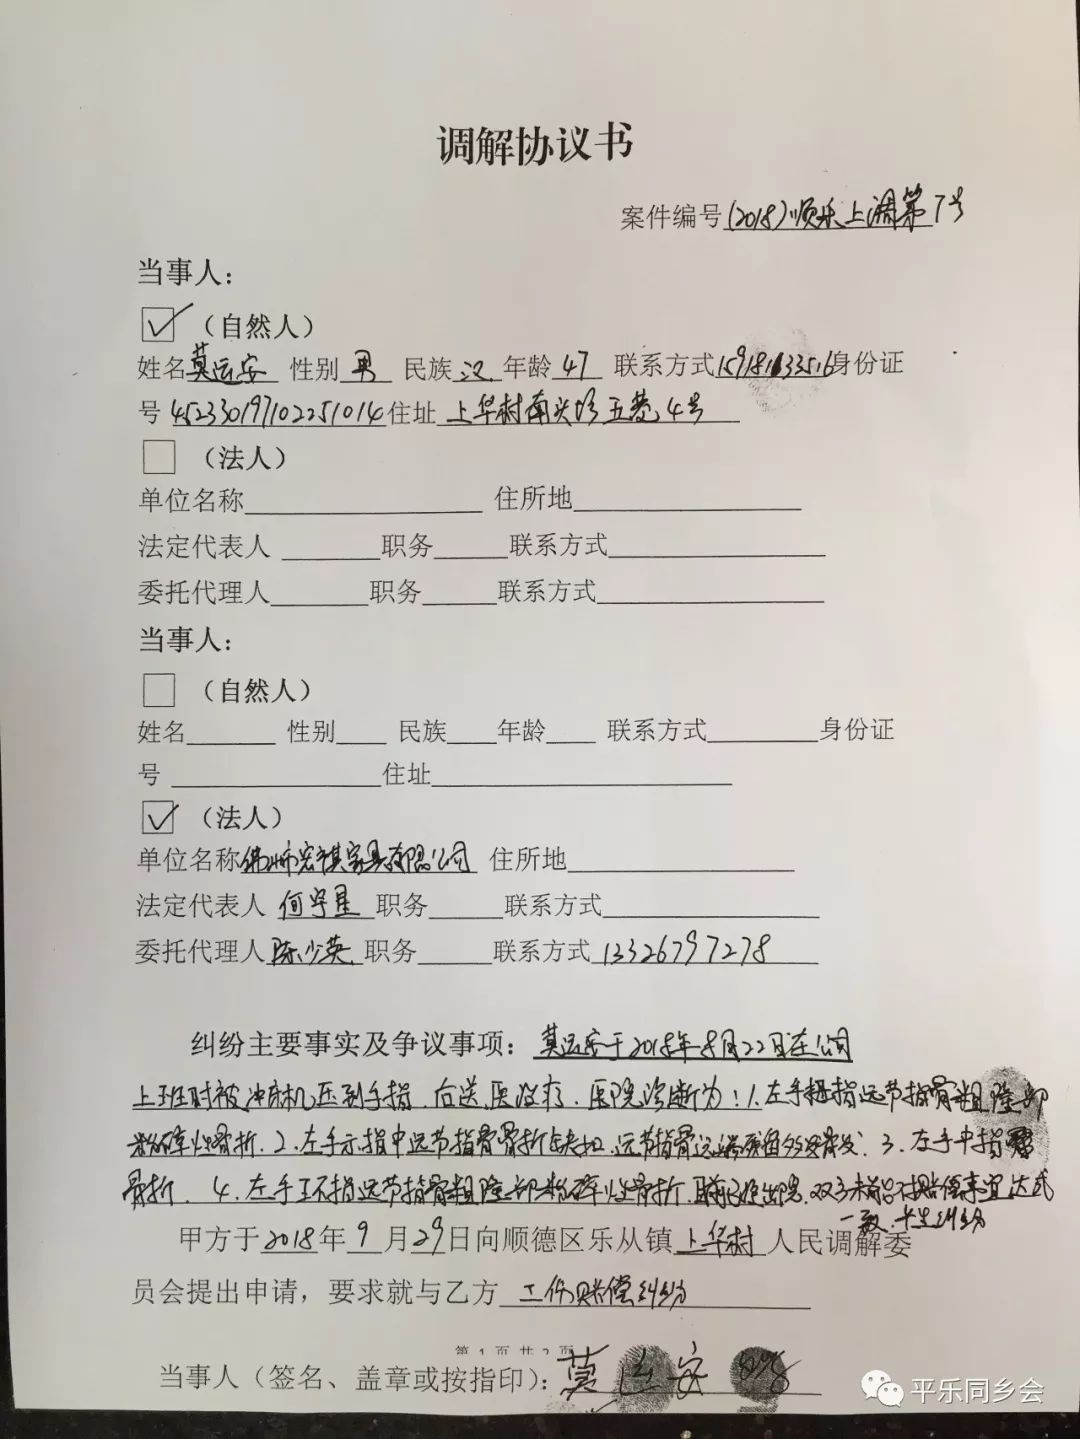 调解协议书
案件编号(2018)顺乐上调第7号
当事人：
（自然人）
姓名莫运安 性别 男 民族 汉 年龄 47 联系方式15918133516身份证
号 452330197102251014 住址 上华村南兴坊五巷4号
（法人）
单位名称 住所地
法定代表人 职务 联系方式
委托代理人 职务 联系方式
当事人：
（自然人）
姓名 性别 民族 年龄 联系方式 身份证
号 住址
（法人）
单位名称 佛山市宏祺家具有限公司 住所地
法定代表人 何守星 职务 联系方式
委托代理人 陈少英 职务 联系方式 13326797278
纠纷主要事实及争议事项：莫运安于2018年8月22日在公司
上班时被冲床机压到手指，后送医治疗，医院诊断为：1.左手拇指远节指骨粗隆部
粉碎性骨折．2．左手示指中远节指骨骨折缺损，远节指骨远端残留 3．左手中指
骨折．4．左手环指远节指骨粗隆部粉碎性骨折．目前已经出院，双方未能就赔偿事宜达成
一致，产生纠纷
甲方于2018年9月29日向顺德区乐从镇 上华村 人民调解委
员会提出申请，要求就与乙方 工伤赔偿纠纷
第 1 页 共 2 页
当事人（签名、盖章或按指印）：莫运安
平乐同乡会